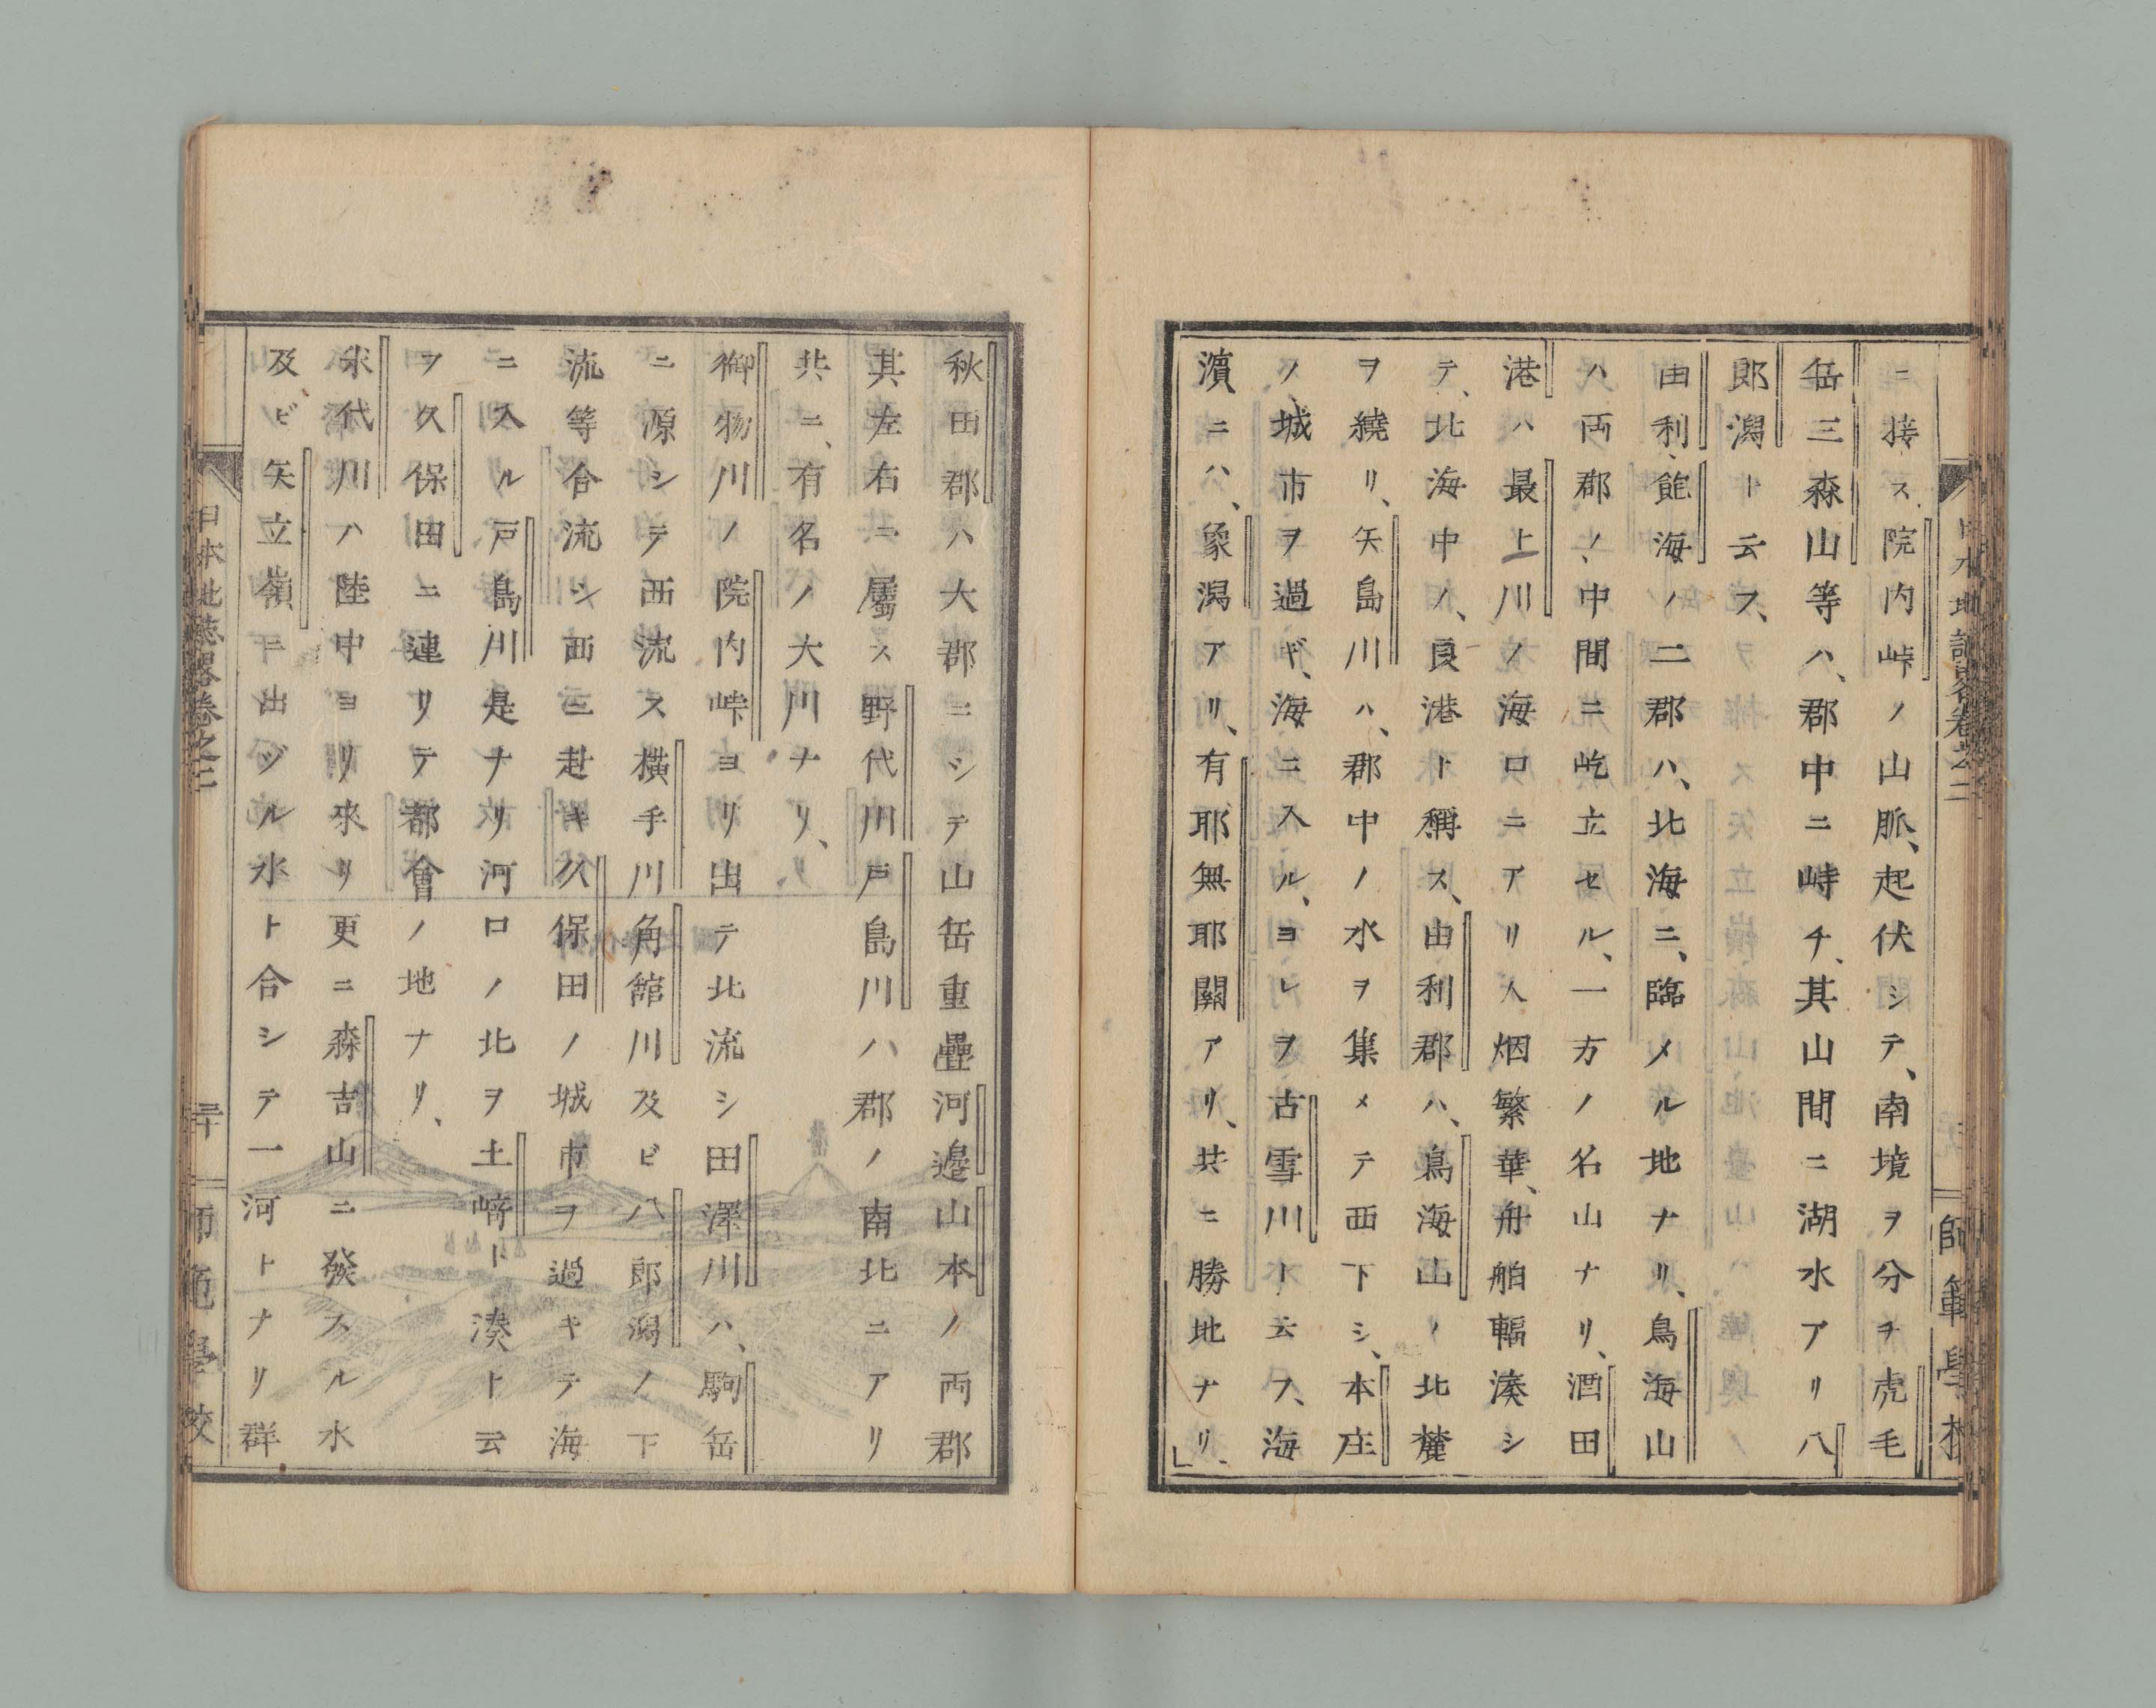 ニ接ス、院内峠ノ山脈、起伏シテ、南境ヲ分チ虎毛
岳三森山等ハ、郡中ニ峙チ、其山間ニ湖水アリ八
郎潟ト云フ、
由利飽海ノ二郡ハ、北海ニ、臨メル地ナリ、鳥海山
ハ両郡ノ中間ニ屹立セル、一方ノ名山ナリ、酒田
港ハ最上川ノ海口ニアリ人烟繁華、舟舶輻湊シ
テ、北海中ノ、良港ト稱ス、由利郡ハ、鳥海山ノ北麓
ヲ繞リ、矢島川ハ、郡中ノ水ヲ集メテ西下シ、本庄
ノ城市ヲ過ギ、海ニ入ル、ヨレヲ古雪川ト云フ、海
濱ニハ、象潟アリ、有耶無耶關アリ、共ニ勝地ナリ、
師範學校
秋田郡ハ大郡ニシテ山岳重疊河邊山本ノ両郡
其左右ニ屬ス野代川戸島川ハ郡ノ南北ニアリ
共ニ、有名ノ大川ナリ、
御物川ノ院内峠ヨリ出テ北流シ田澤川ハ、駒岳
ニ源シテ西流ス横手川角館川及ビ八郎潟ノ下
流等合流シ西ニ赴キ久保田ノ城市ヲ過キテ海
ニ入ル戸島川是ナリ河口ノ北ヲ土崎ト湊ト云
ヲ久保田ニ連リテ都會ノ地ナリ、
米代川ハ陸中ヨリ來リ更ニ森吉山ニ發スル水
及ビ矢立嶺ニ出ジル水ト合シテ一河トナリ群
日本地誌畧卷之二
師範學校